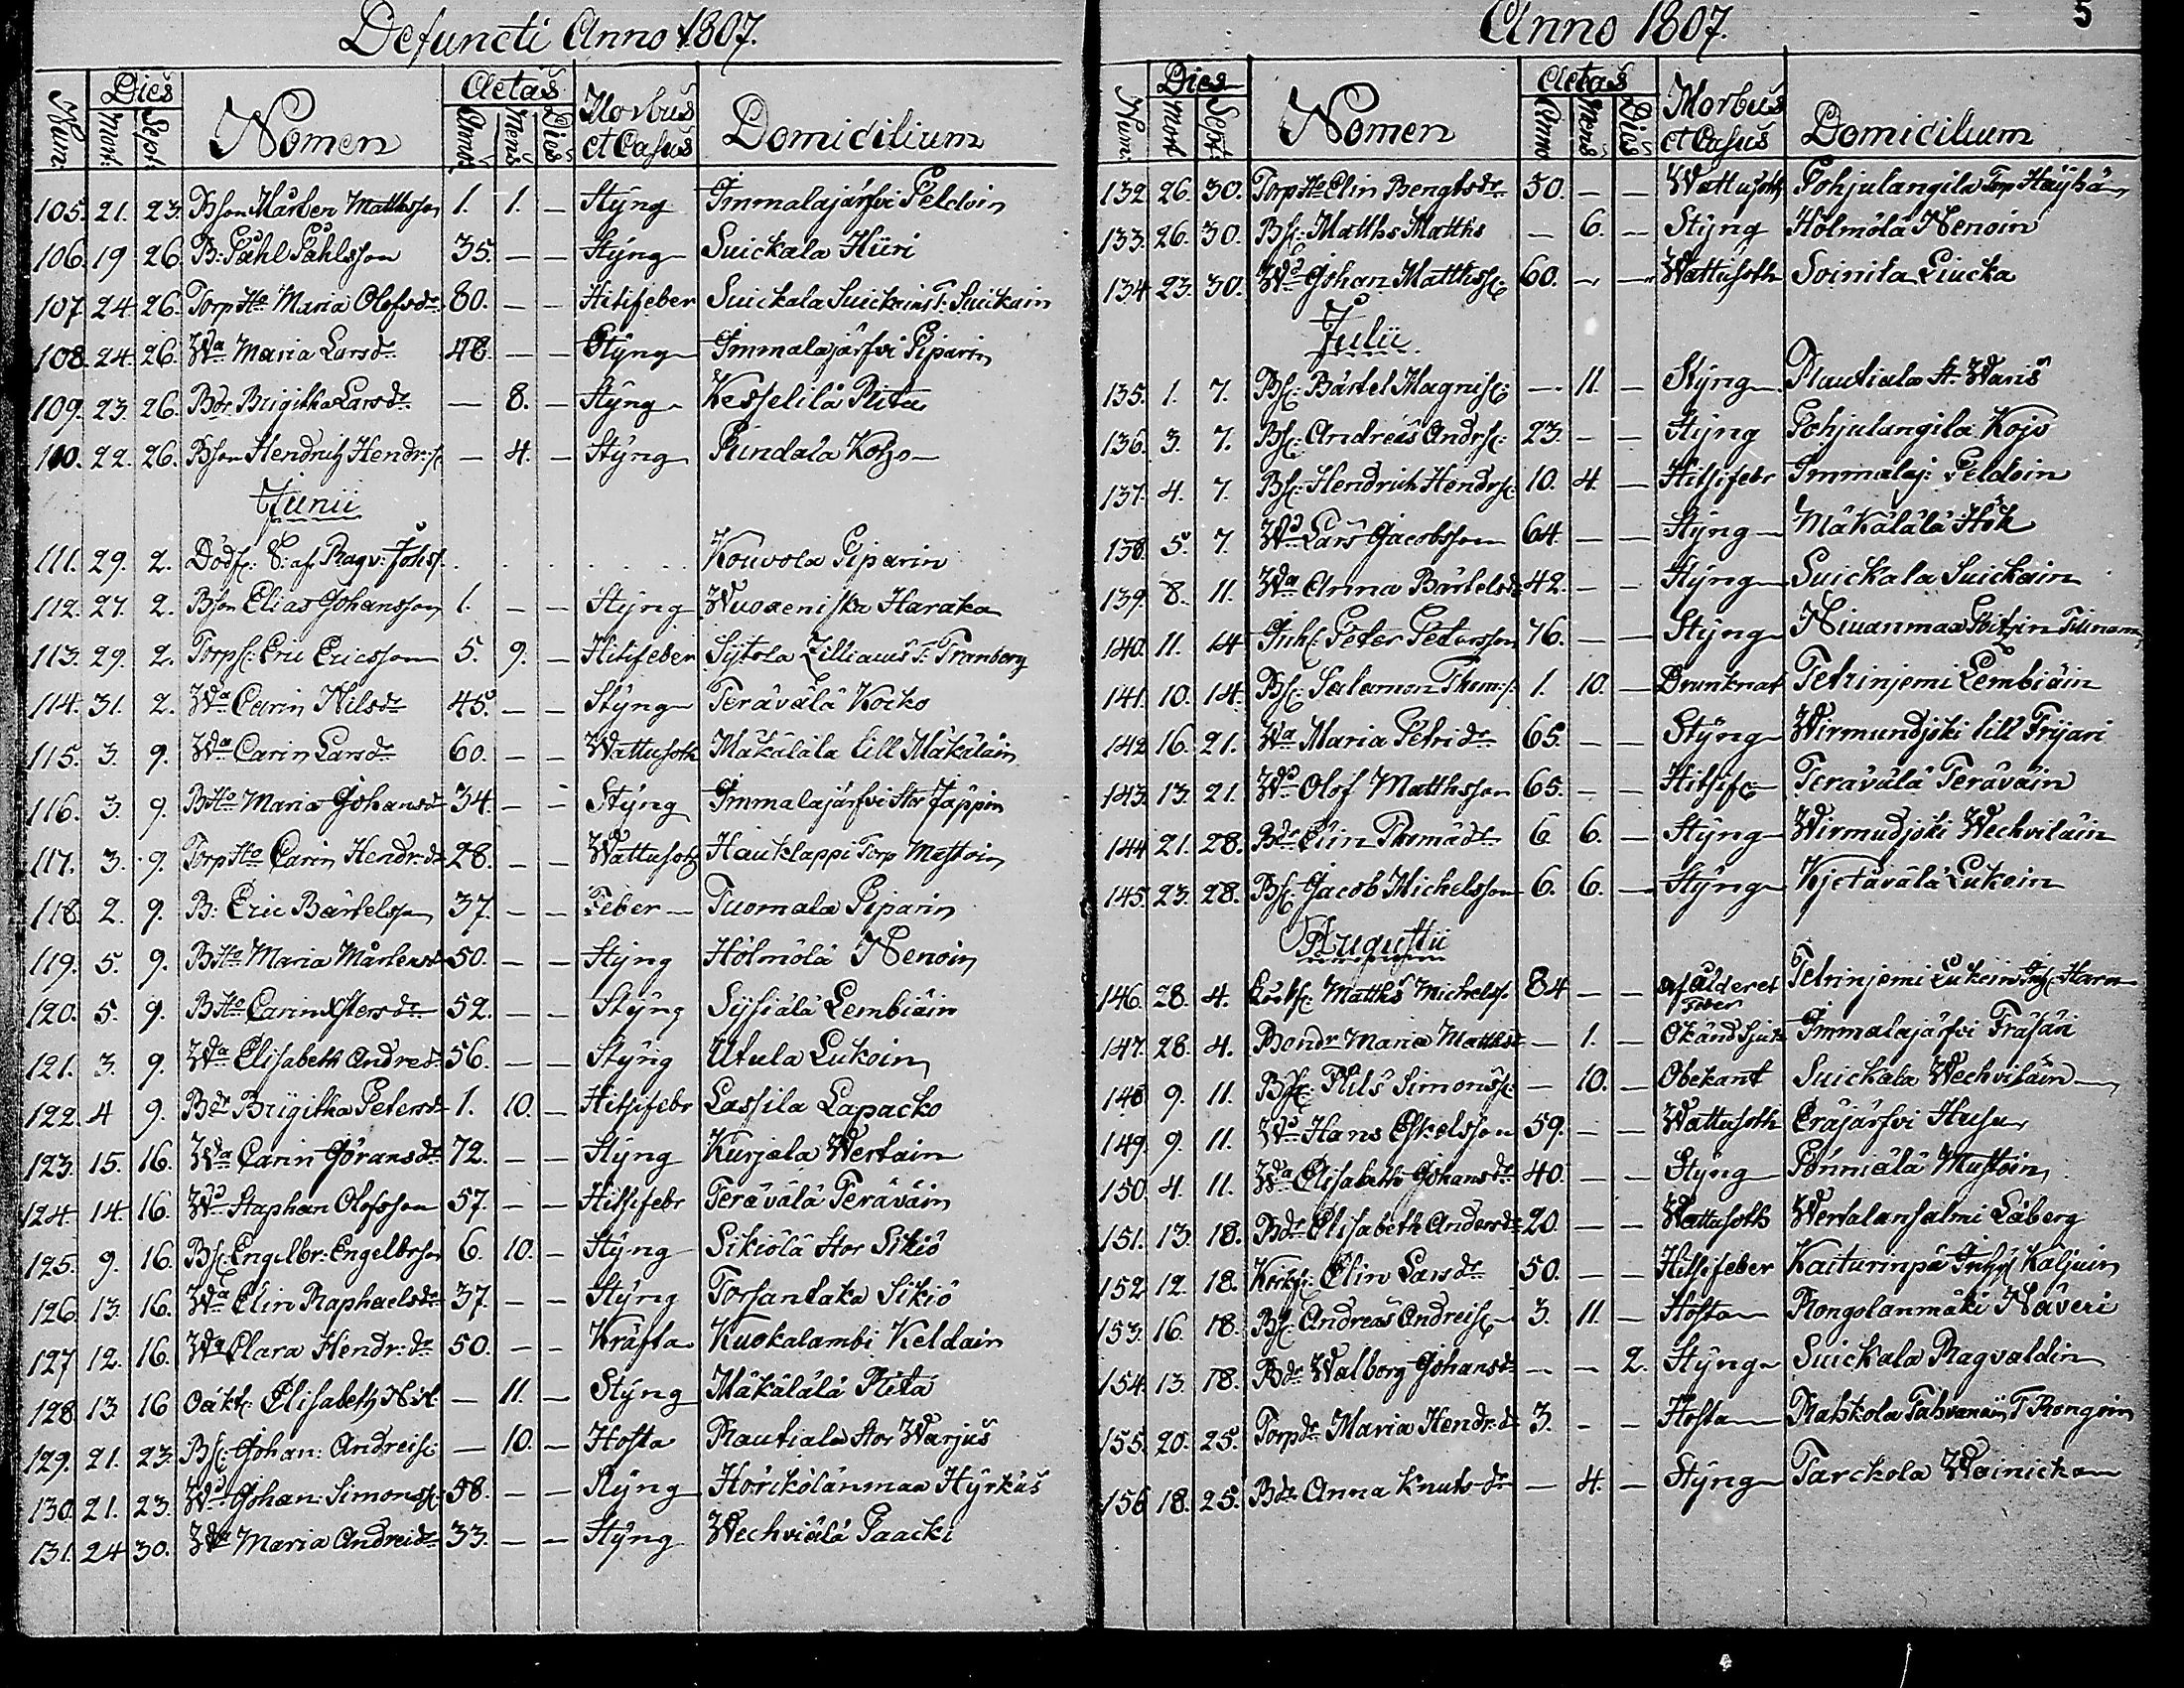 Defuncti Anno 1807.
Num: Dies Mort: Sept: Nomen Aetas Annos Mens Dies Morbus et Casus Domicilium
105. 21. 23. Bson Mårten Mattsson 1. 1. — Stÿng Immalajärfvi Peldoin
106. 19 26 B: Påhl Påhlsson 35. — — Stÿng Suickala Hiiri
107. 24 26. Torp Ho Maria Olofsdr 80. — — Hitsifeber Suickala Suickains T: Suickain
108. 24. 26. Wa Maria Larsdr 48. — — Stÿng Immalajärfvi Piparin
109. 23. 26. Bdr Brigitha Larsdr — 8. — Stÿng Kesselilä Rita
110. 22. 26. Bson Hendrich Hendr:s: — 4. — Stÿng Pundala Kotzo
Junii
111. 29. 2. Dödf: S: af Ragv: Johss. Kouvola Piparin
112. 27. 2. Bson Elias Johansson 1. — — Stÿng Wuoxeniska Haraka
113. 29. 2. Torps: Eric Ericsson 5. 9. — Hitsifeber Sÿtola Zilliacus T: Tranberg
114. 31. 2. Wa Carin Nilsdr 45. — — Stÿng Terävälä Kocko
115. 3. 9. Wa Carin Larsdr 60. — — Wattusoth Mäkälälä lill Mäkäläin
116. 3. 9. BHo Maria Johansdr 34. — — Stÿng Immalajärfvi Stor Jäppin
117. 3. 9. Torp Ho Carin Hendr:dr 28. — — Wattusoth Hauklappi Torp Mustoin
118. 2. 9. B: Eric Bärtelsson 37. — — Feber — Tuomala Piparin
119. 5. 9. BHo Maria Mårtensdr 50. — — Stÿng Hölmölä Nenoin
120. 5. 9. BHo Carin Xstersdr 52. — — Stÿng Sÿsiälä Lembiäin
121. 3. 9. Wa Elisabeth Andredr 56. — — Stÿng Utula Lukoin
122. 4 9. Bdr Brigitha Petersdr 1. 10. — Hitsifebr Lassila Lapacko
123. 15. 16. Wa Carin Göransdr 72. — — Stÿng Kurjala Wertain
124. 14. 16. Wd Staphan Olofsson 57. — — Hitsifebr Terävälä Teräväin
125. 9. 16. Bs: Engelbr: Engelbrson 6. 10. — Stÿng Sikiölä Stor Sikiö
126. 13. 16. Wa Elin Raphaelsdr 37. — — Stÿng Torsantaka Sikiö
127 12. 16. Wa Clara Hendr:dr 50. — — Kräfta Kuokalambi Keldain
128. 13. 16 Oäkt: Elisabeth — 11. — Stÿng Mäkälälä Ritä
129. 21. 23. Bs: Johan: Andreis: — 10. — Hosta Rautiala Stor Warjus
130. 21. 23. Wd Johan: Simonss: 58. — — Stÿng Horckolanmaa Hÿrkäs
131. 24 30. Wa Maria Andreidr 33. — — Stÿng Wechviälä Paacki
Anno 1807. 5
Num: Dies Mort Sept: Nomen Aetas Anno Mens Dies Morbus et Casus Domicilium
132. 26. 30. Torp Ho Elin Bengtsdr 50. — — Wattusoth Pohjalangila Torp Häÿhä
133. 26. 30. Bs: Matths Matths — 6. — Stÿng Hölmölä Nenoin
134 23. 30. Wd Johan Matthss: 60. — — Wattusoth Soinila Liucka
Julii
135. 1. 7. Bs: Bärtel Magnis: — 11. — Stÿng Rautiala St. Waris
136. 3. 7. Bs: Andreas Andrs: 23. — — Stÿng Pohjalangila Kojo
137. 4. 7. Bs: Hendrich Hendrs: 10. 4. — Hitsifebr Immalaj: Peldoin
138. 5. 7. Wd Lars Jacobsson 64 — — Stÿng Mäkälälä Hök
139. 8. 11. Wa Anna Bärtelsdr 42. — — Stÿng Suickala Suickain
140. 11. 14 Inh: Peter Petersson 76. — — Stÿng Niuanmaa
141. 10. 14. Bs: Salomon Thom:s: 1. 10. — Drunknat Tetrinjemi Lembiäin
142 16. 21. Wa Maria Petridr 65. — — Stÿng Wirmundjoki lill Frÿari
143. 13. 21. Wd Olof Matthsson 65. — — Hitsife: Terävälä Teräväin
144 21. 28. Bdr Elin Thomädr 6 6. — Stÿng Wirmudjoki Wechviläin
145. 23. 28. Bs: Jacob Michelsson 6. 6. — Stÿng Kjetävälä Lukoin
Augustii
146. 28. 4. Matths Michelss. 84 — — af ålderet Tetrinjemi Lukoin Hara
Feber
147. 28. 4. Bondr Maria Matthsdr — 1. — Okänd Sjuk Immalajärfvi Träsäri
148 9. 11. Bs: Nils Simonss: — 10. — Obekant Suickala Wechviläin
149. 9. 11. Wd Hans Eskelsson 59. — — Wattusoth Eräjärfvi Husu
150. 4. 11. Wa Elisabeth Johansdr 40. — — Stÿng Pönniälä Mustoin
151. 13. 18. Bdr Elisabeth Andersdr 20. — — Wattusoth Wertalansalmi Låberg
152 12. 18. Elin Larsdr 50. — — Hitsifeber Kaiturinpä Inhÿs Kaljuin
153. 16. 18. Bs: Andreas Andreis: 3. 11. — Hosta Rongolanmäki Näveri
154. 13. 18. Bdr Walborg Johansdr — — 2. Stÿng Suickala Ragvaldin
155. 20. 25. Torpdr Maria Hendr:dr 3. — — Hosta Rahkola Tahvanain T Rongoin
156 18. 25. Bdr Anna Knutsdr — 4. — Stÿng Tarckola Wainicka